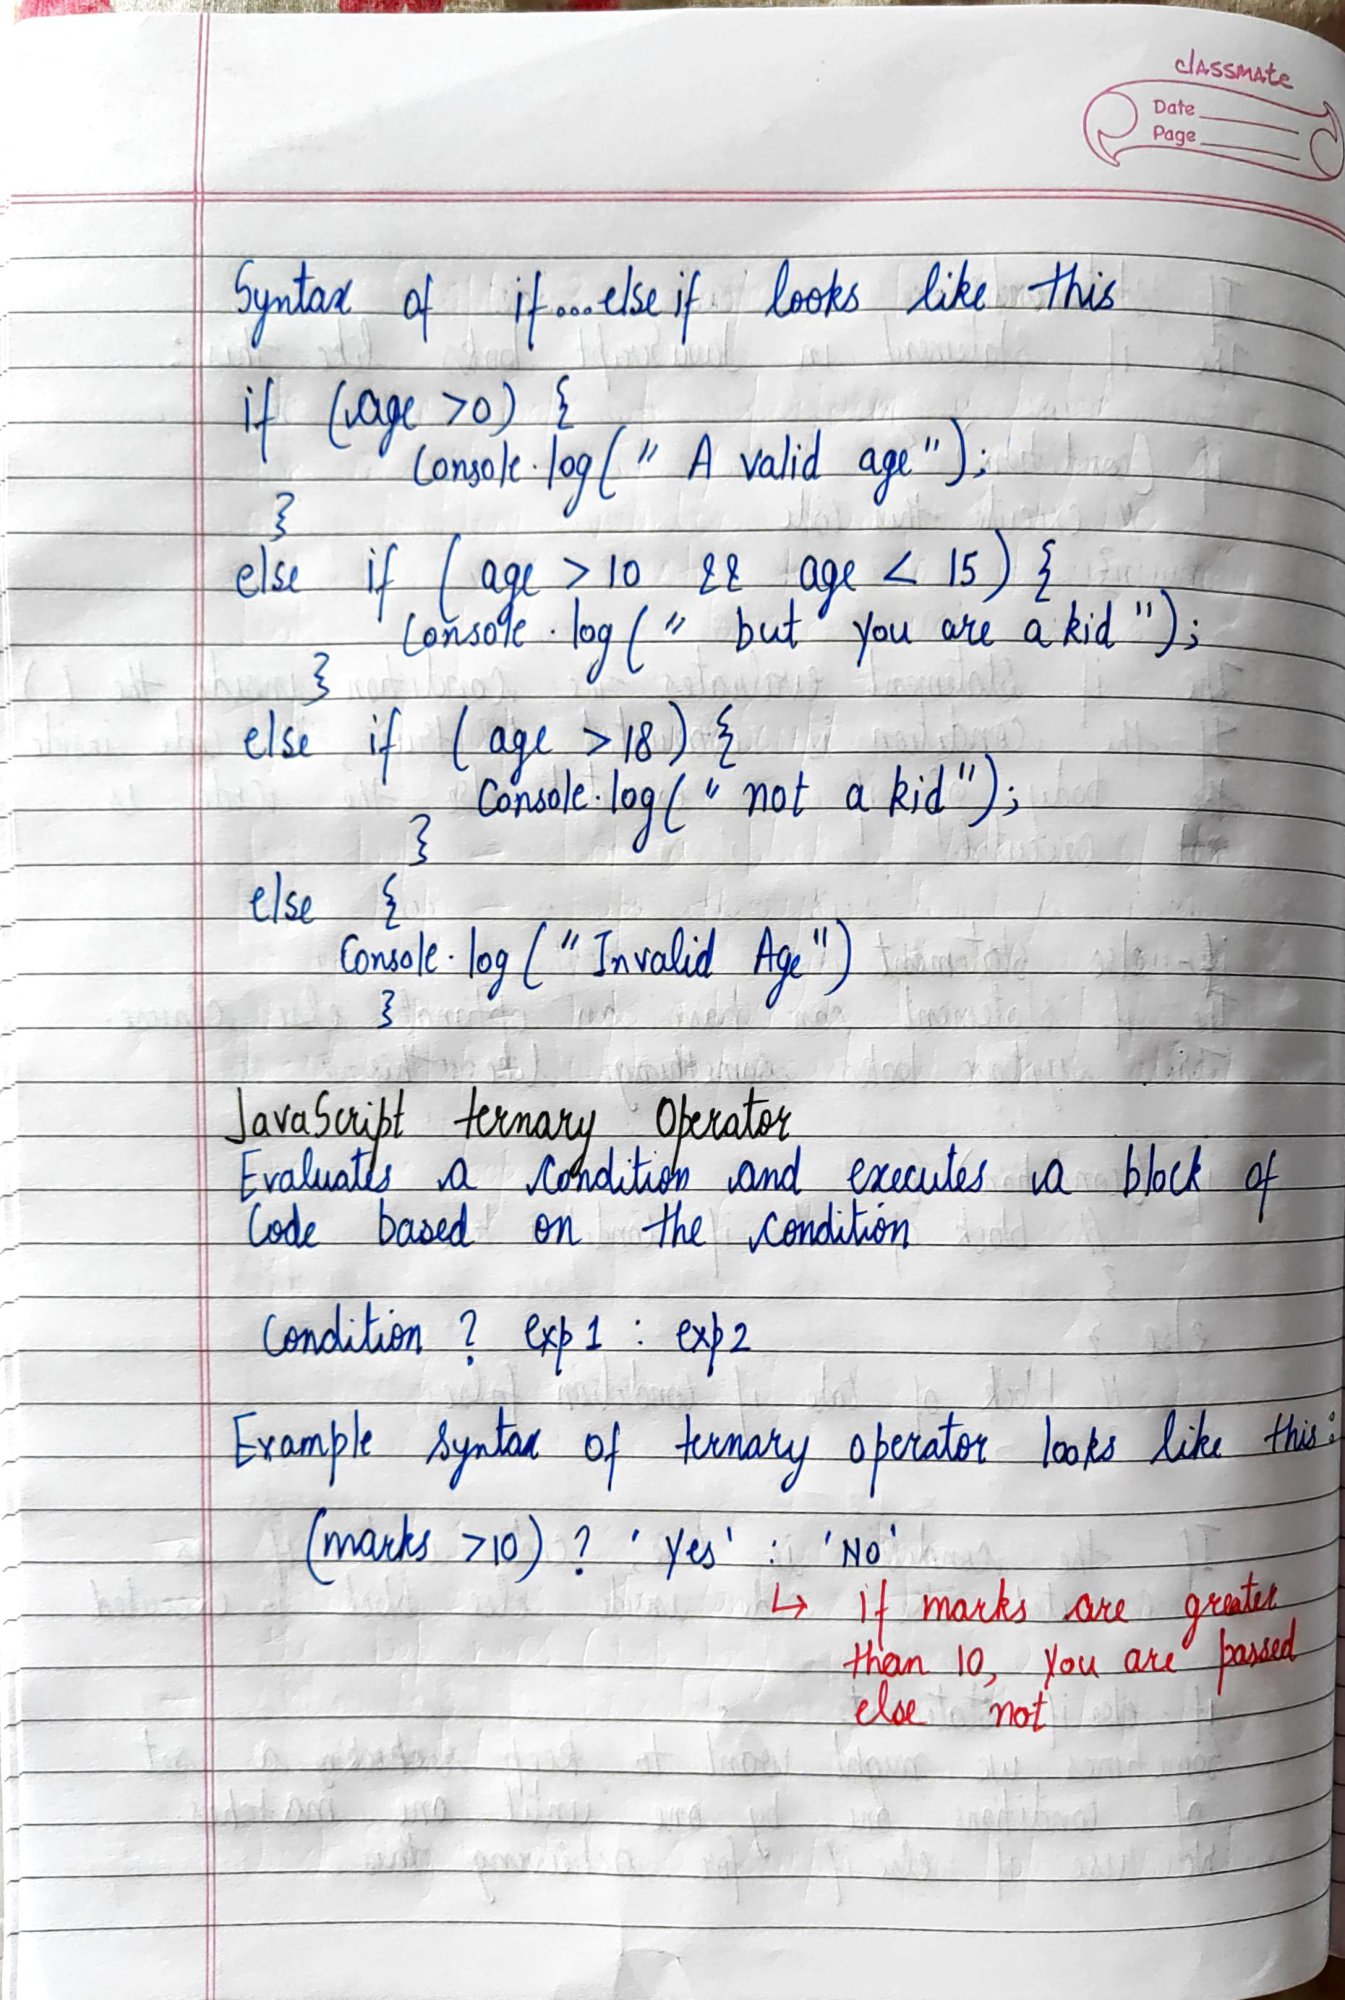 classmate
Date
Page
Syntax of if...else if looks like this
if (age >0) {
Console.log(" A valid age");
}
else if (age > 10 && age < 15) {
Console.log(" but you are a kid");
}
else if (age >18) {
Console.log(" not a kid");
}
else {
Console.log("Invalid Age")
}
JavaScript ternary Operator
Evaluates a condition and executes a block of
Code based on the condition
Condition ? exp1 : exp2
Example syntax of ternary operator looks like this:
(marks >10) ? 'Yes' : 'NO'
↳ if marks are greater
than 10, you are passed
else not